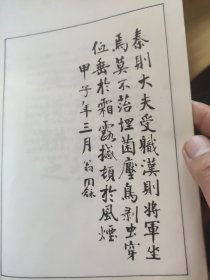 秦則大夫受職漢則將軍坐
焉莫不苔埋菌壓鳥剥虫穿
低垂於霜露撼頓於風煙
甲子年三月 翁同龢